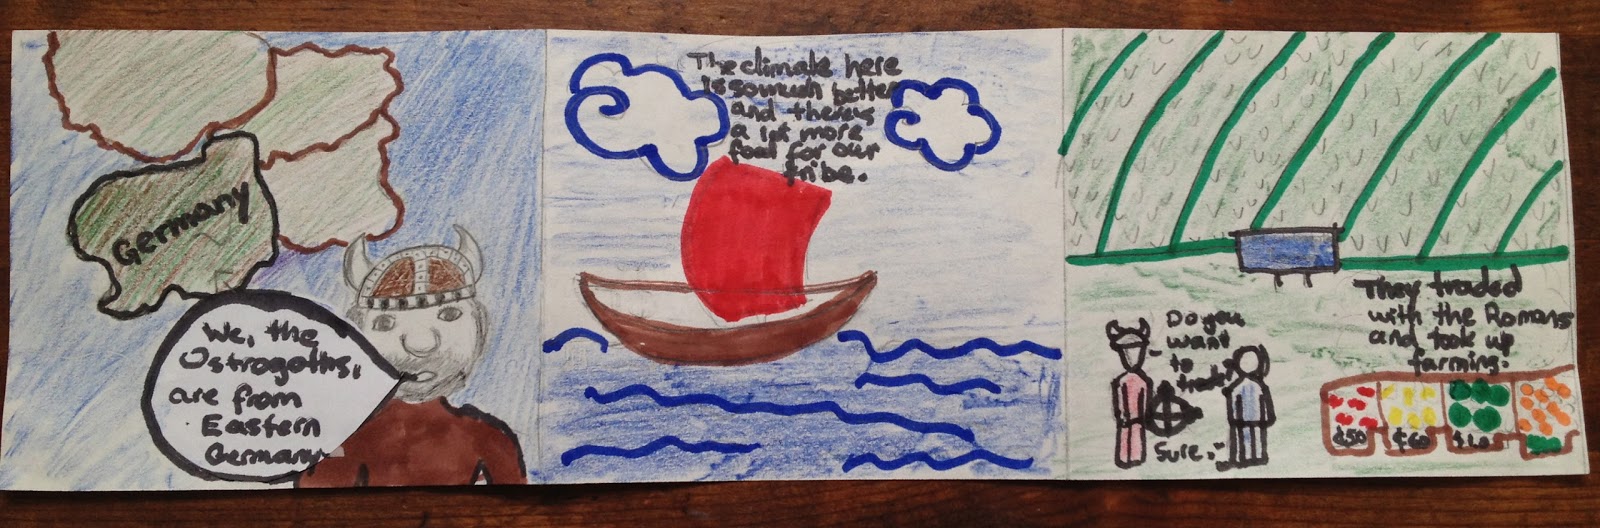 Germany
We, the
Ostrogoths,
are from
Eastern
Germany
The climate here
is so much better
and there's
a lot more
food for our
tribe.
They traded
with the Romans
and took up
farming.
Do you
want
to
trade?
Sure.